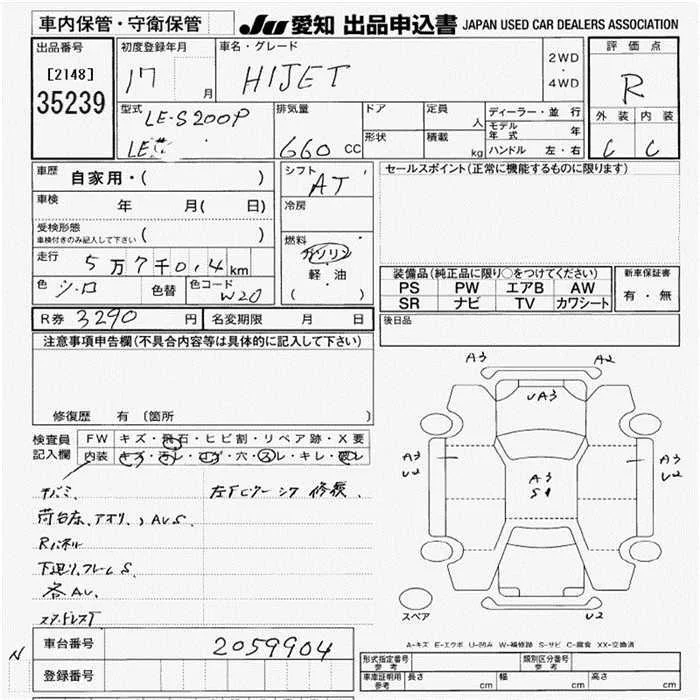 車内保管・守衛保管
JU 愛知 出品申込書 JAPAN USED CAR DEALERS ASSOCIATION
出品番号
[2148]
35239
初度登録年月
17 月
車名・グレード
HIJET
2WD
・
4WD
評価点
R
外装 内装
C C
型式
LE-S200P
LE
排気量
660 CC
ドア
形状
定員
人
積載
kg
ディーラー・並行
モデル年式 年
ハンドル 左・右
車歴
自家用・( )
車検
年 月( 日)
受検形態
車検付きのみ記入して下さい ( )
走行
5万7千0.4km
色
シロ
色替
色コード
W20
シフト
AT
冷房
燃料
ガソリン
軽・油
( )
セールスポイント(正常に機能するものに限ります)
装備品(純正品に限り○をつけてください)
PS PW エアB AW
SR ナビ TV カワシート
新車保証書
有・無
R券 3290 円
名変期限 月 日
後日品
注意事項申告欄(不具合内容等は具体的に記入して下さい)
修復歴 有 〔箇所 〕
検査員
記入欄
FW キズ・飛石・ヒビ割・リペア跡・X要
内装 キズ・汚レ・コゲ・穴・スレ・キレ・破レ
荷台床、アオリ、AU.S.
Rパネル
下廻リ、フレームS.
各AU.
A3 A2
UA3
A3
U2
A3
S1
A3
U2
U2
スペア
A-キズ E-エクボ U-凹み W-補修跡 S-サビ C-腐食 XX-交換済
N
車台番号 2059904
登録番号
形式指定番号
参考
類別区分番号
参考
車庫証明用
参考
長さ cm 幅 cm 高さ cm